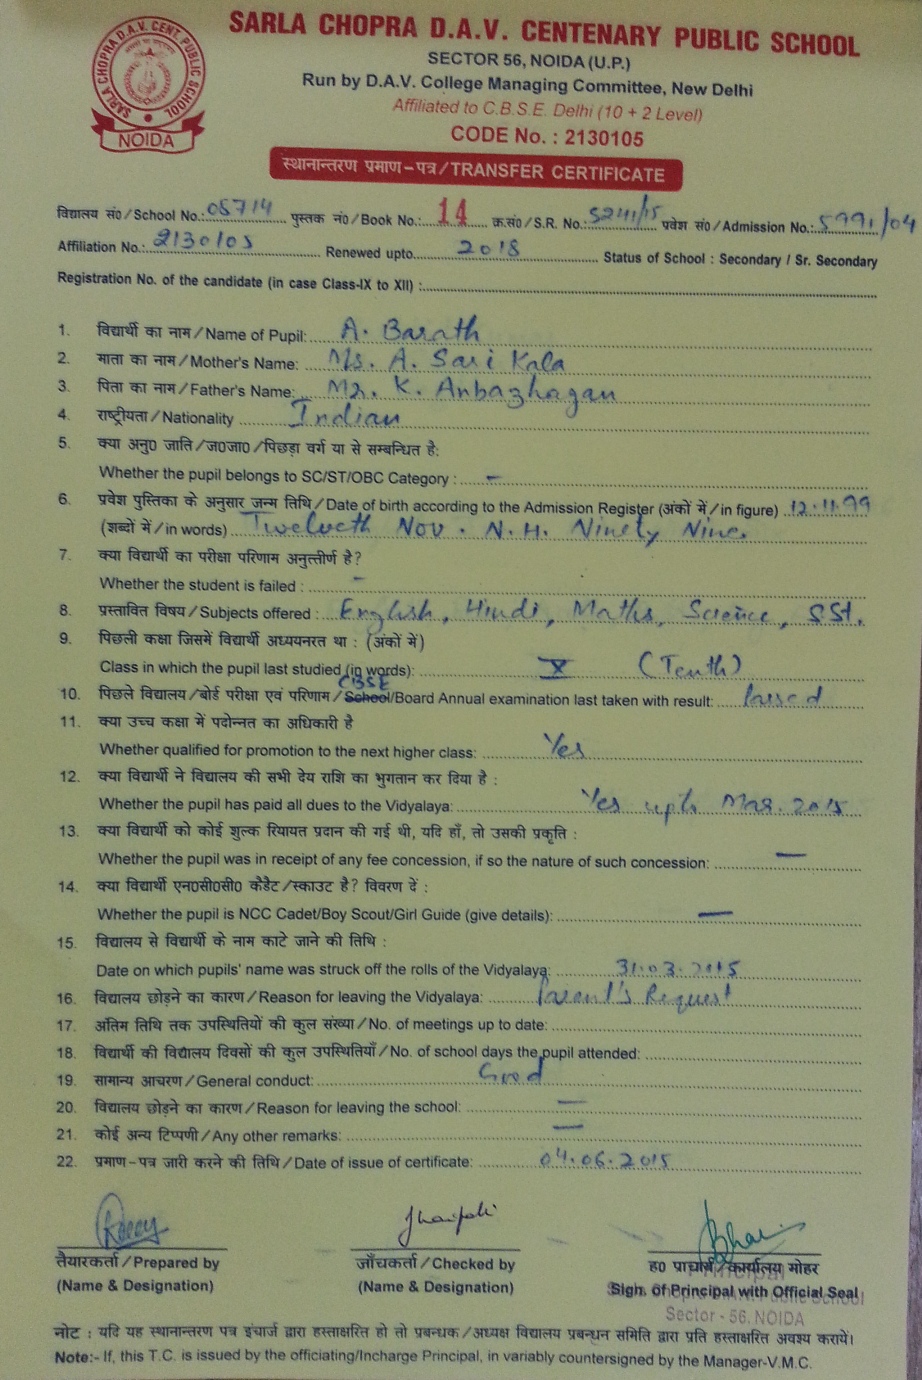 SARLA CHOPRA D.A.V. CENT. PUBLIC SCHOOL
NOIDA
SARLA CHOPRA D.A.V. CENTENARY PUBLIC SCHOOL
SECTOR 56, NOIDA (U.P.)
Run by D.A.V. College Managing Committee, New Delhi
Affiliated to C.B.S.E. Delhi (10 + 2 Level)
CODE No. : 2130105
स्थानान्तरण प्रमाण-पत्र/TRANSFER CERTIFICATE
विद्यालय सं0/School No.: 08714 पुस्तक नं0/Book No.: 14 क्र.सं0/S.R. No.: 5241/15 प्रवेश सं0/Admission No.: 5991/04
Affiliation No.: 2130105 Renewed upto 2018 Status of School : Secondary / Sr. Secondary
Registration No. of the candidate (in case Class-IX to XII) :
1. विद्यार्थी का नाम/Name of Pupil: A. Barath
2. माता का नाम/Mother's Name: Ms. A. Sasi Kala
3. पिता का नाम/Father's Name: Mr. K. Anbazhagan
4. राष्ट्रीयता/Nationality Indian
5. क्या अनु0 जाति/ज0जा0/पिछड़ा वर्ग या से सम्बन्धित है:
Whether the pupil belongs to SC/ST/OBC Category : –
6. प्रवेश पुस्तिका के अनुसार जन्म तिथि/Date of birth according to the Admission Register (अंकों में/in figure) 12.11.99
(शब्दों में/in words) Twelveth Nov. N.H. Ninety Nine.
7. क्या विद्यार्थी का परीक्षा परिणाम अनुत्तीर्ण है?
Whether the student is failed : –
8. प्रस्तावित विषय/Subjects offered : English, Hindi, Maths, Science, S.St.
9. पिछली कक्षा जिसमें विद्यार्थी अध्ययनरत था : (अंकों में)
Class in which the pupil last studied (in words): X (Tenth)
CBSE
10. पिछले विद्यालय/बोर्ड परीक्षा एवं परिणाम/School/Board Annual examination last taken with result: Passed
11. क्या उच्च कक्षा में पदोन्नत का अधिकारी है
Whether qualified for promotion to the next higher class: Yes
12. क्या विद्यार्थी ने विद्यालय की सभी देय राशि का भुगतान कर दिया है :
Whether the pupil has paid all dues to the Vidyalaya: Yes upto Mar. 2015
13. क्या विद्यार्थी को कोई शुल्क रियायत प्रदान की गई थी, यदि हाँ, तो उसकी प्रकृति :
Whether the pupil was in receipt of any fee concession, if so the nature of such concession: —
14. क्या विद्यार्थी एन0सी0सी0 कैडैट/स्काउट है? विवरण दें :
Whether the pupil is NCC Cadet/Boy Scout/Girl Guide (give details): —
15. विद्यालय से विद्यार्थी के नाम काटे जाने की तिथि :
Date on which pupils' name was struck off the rolls of the Vidyalaya: 31.03.2015
16. विद्यालय छोड़ने का कारण/Reason for leaving the Vidyalaya: Parent's Request
17. अंतिम तिथि तक उपस्थितियों की कुल संख्या/No. of meetings up to date:
18. विद्यार्थी की विद्यालय दिवसों की कुल उपस्थितियाँ/No. of school days the pupil attended:
19. सामान्य आचरण/General conduct: Good
20. विद्यालय छोड़ने का कारण/Reason for leaving the school: —
21. कोई अन्य टिप्पणी/Any other remarks: —
22. प्रमाण-पत्र जारी करने की तिथि/Date of issue of certificate: 04.06.2015
तैयारकर्ता/Prepared by जाँचकर्ता/Checked by ह0 प्राचार्य/कार्यालय मोहर
Principal
(Name & Designation) (Name & Designation) Sign. of Principal with Official Seal
Public School
Sector - 56, NOIDA
नोट : यदि यह स्थानान्तरण पत्र इंचार्ज द्वारा हस्ताक्षरित हो तो प्रबन्धक/अध्यक्ष विद्यालय प्रबन्धन समिति द्वारा प्रति हस्ताक्षरित अवश्य करायें।
Note:- If, this T.C. is issued by the officiating/Incharge Principal, in variably countersigned by the Manager-V.M.C.